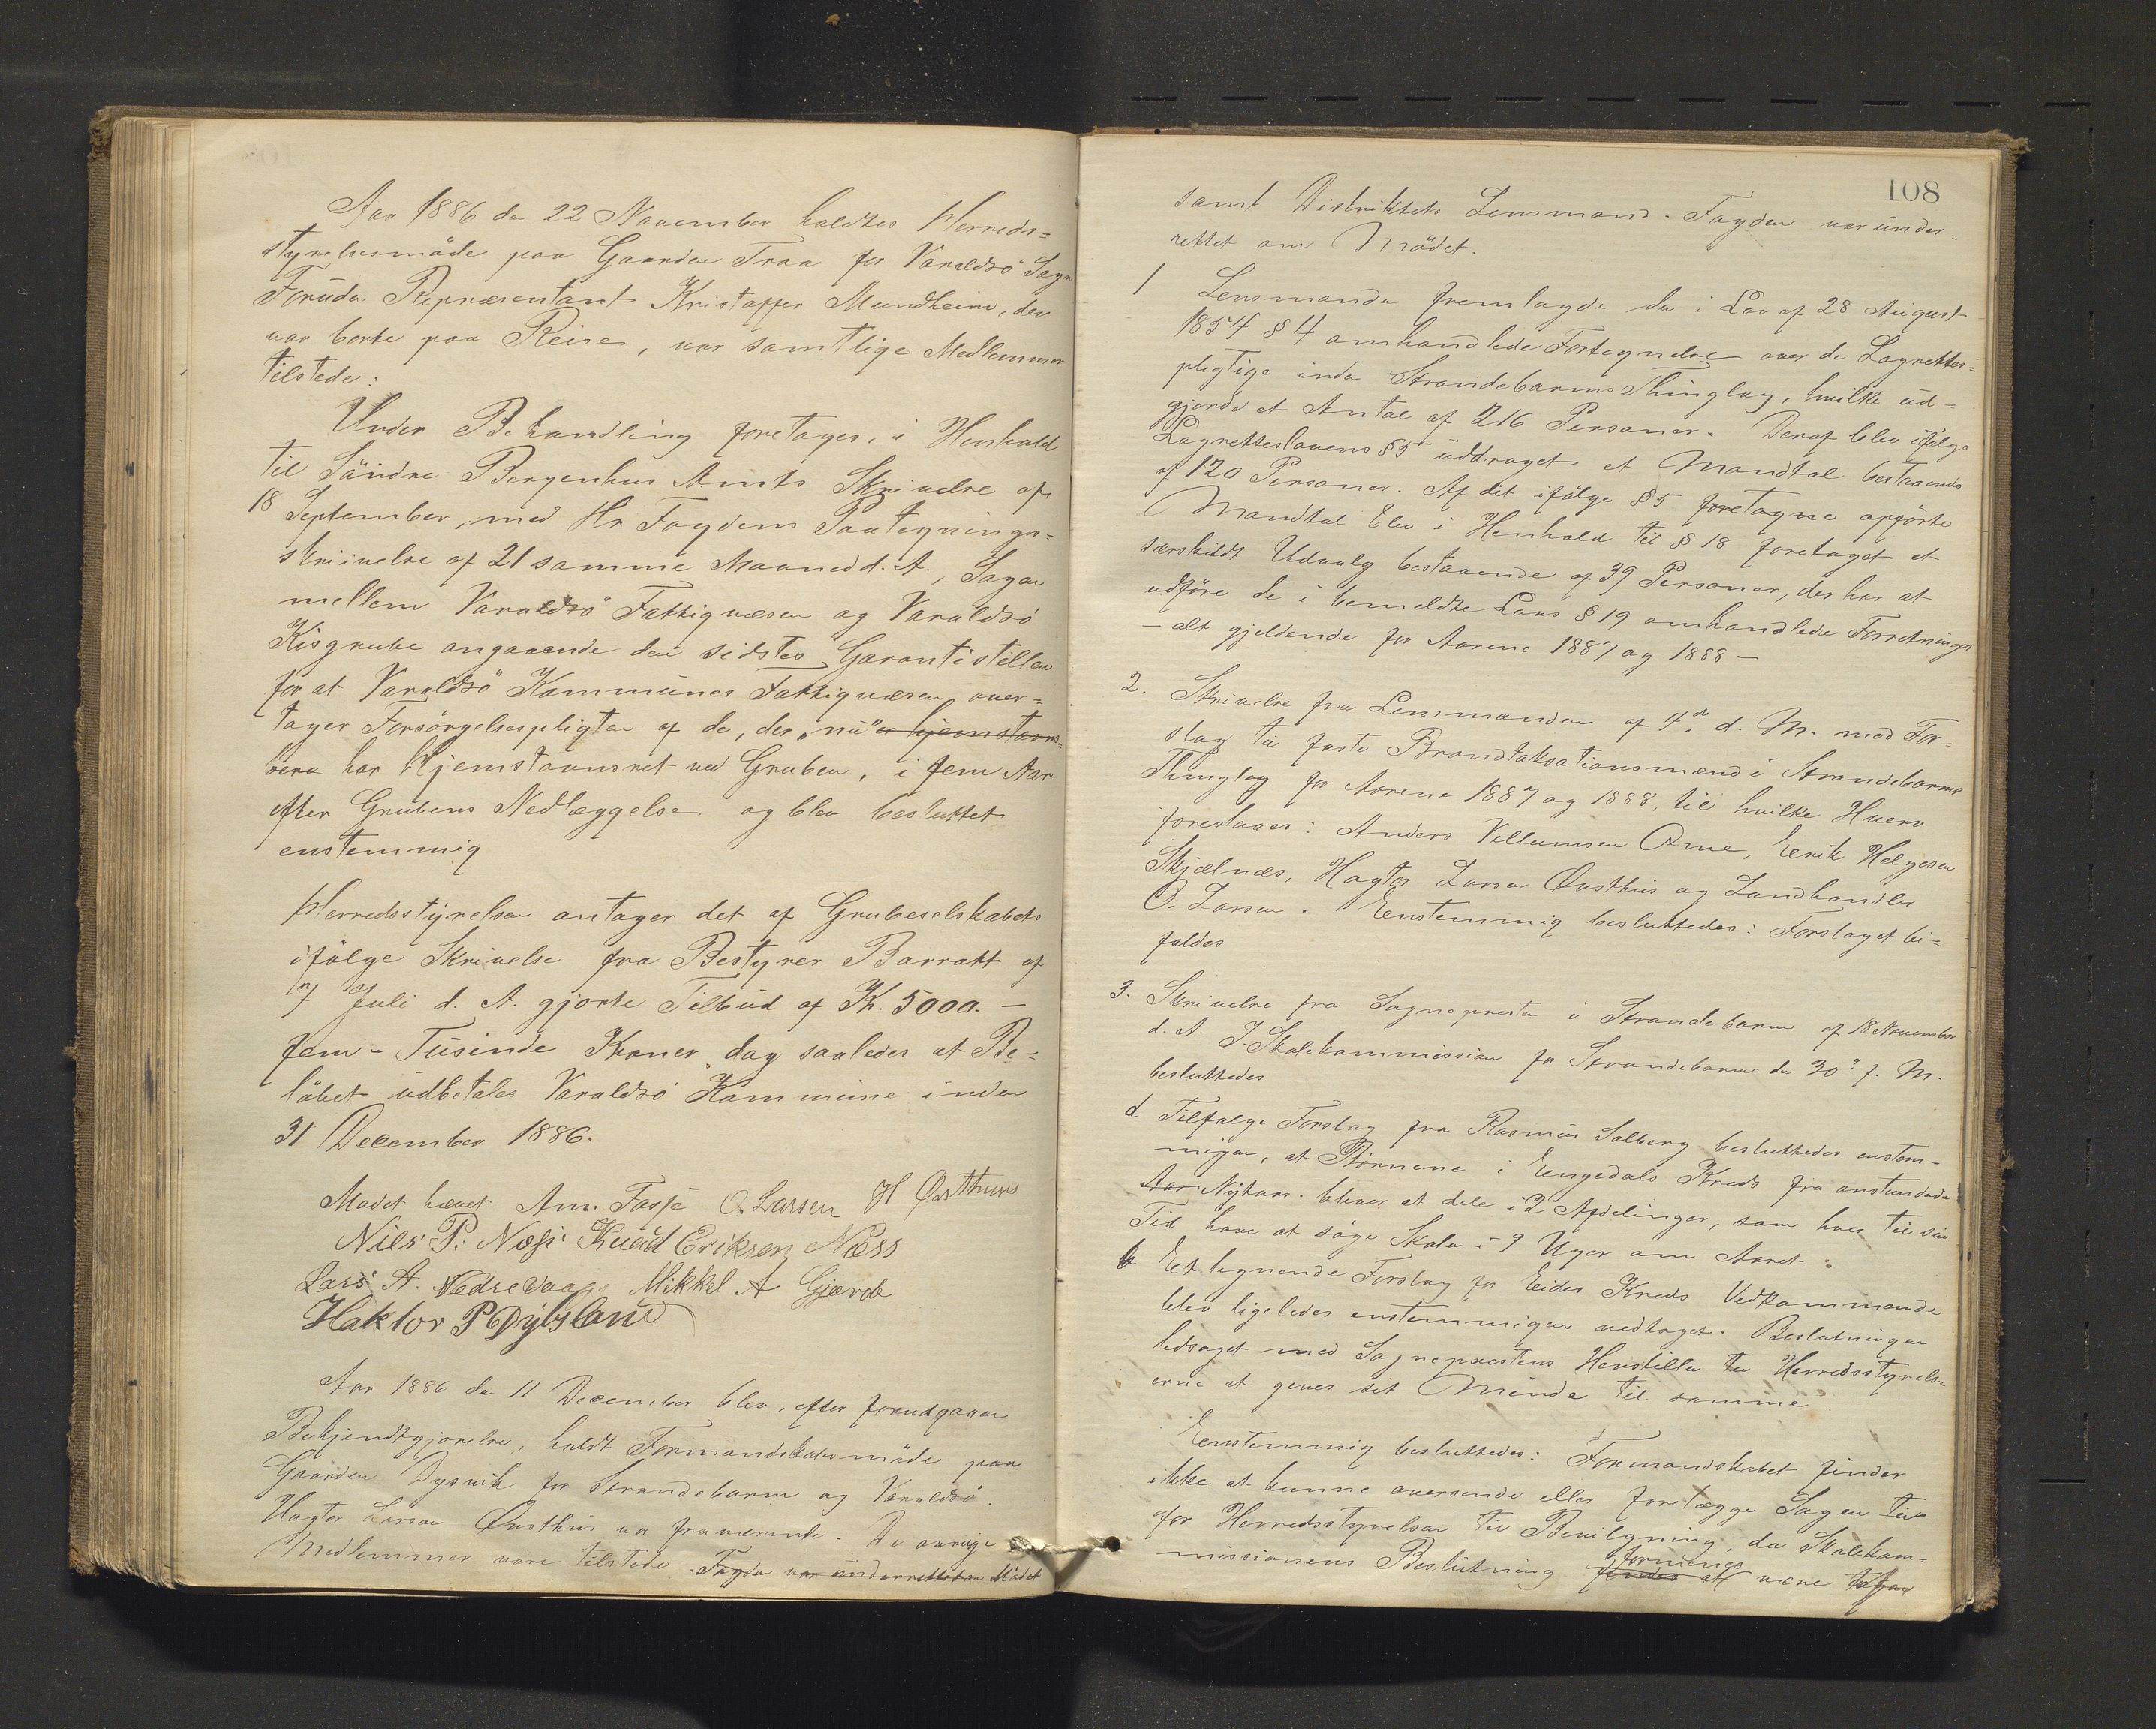 Aar 1886 den 22 November holdtes Herreds=
styrelsesmöde paa Gaarden Traa for Varaldsö Sogn
Foruden Repræsentant Kristoffer Mundheim, der
var borte paa Reise, var samtlige Medlemmer
tilstede:
Under Behandling foretages, i Henhold
til Söndre Bergenhus Amts Skrivelse af
18 September, med Hr. Fogdens Paategnings=
skrivelse af 21 samme Maaned d. A., Sagen
mellem Varaldsö Fattigvæsen og Varaldsö
Kisgrube angaaende den sidstes Garantistillen
for at Varaldsö Kommunes Fattigvæsen over=
tager Forsörgelsespligten af de, der „nu" er hjemstavns=
bera har Hjemstavnsret ved Gruben, i fem Aar
efter Grubens Nedlæggelse og blev besluttet
enstemmig
Herredsstyrelsen antager det af Grubeselskabets
ifölge Skrivelse fra Bestyrer Barratt af
7 Juli d. A. gjorte Tilbud af Kr. 5000. —
fem - Tusinde Kroner, dog saaledes at Be=
löbet udbetales Varaldsö Kommune inden
31 December 1886.
Mödet hævet Am. Fosse O. Larsen H Østhuus
Nils P. Næss Knud Eriksen Næss
Lars A. Nedrevaage Mikkel A Gjerde
Haktor P Dybsland
Aar 1886 den 11 December blev, efter forudgaaen
Bekjendtgjørelse, holdt Formandskabsmöde paa
Gaarden Dysvik for Strandebarm og Varaldsö.
Hagtor Larsen Østhus var fraværende. De övrige
Medlemmer vare tilstede. Fogden var underrettet om Mödet
108
samt Distriktets Lensmand. Fogden var under=
rettet om Mödet.
1 Lensmanden fremlagde den i Lov af 28 August
1854 § 4 omhandlede Fortegnelse over de Lagrettes=
pligtige inden Strandebarms Thinglag, hvilke ud=
gjorde et Antal af 216 Personer. Deraf blev ifölge
Lagretteslovens § 5 uddraget et Mandtal bestaaende
af 120 Personer. Af det ifölge § 5 foretagne opförte
Mandtal blev i Henhold til § 18 foretaget et
særskildt Udvalg bestaaende af 39 Personer, der har at
udföre de i bemeldte Lovs § 19 omhandlede Forretninger
— alt gjeldende for Aarene 1887 og 1888 —
2. Skrivelse fra Lensmanden af 4de d. M. med For=
slag til faste Brandtaksationsmænd i Strandebarms
Thinglag for Aarene 1887 og 1888, til hvilke Hverv
foreslaaes: Anders Villumsen Ome, Erik Helgesen
Skjælnæs, Hagtor Larsen Østhus og Landhandler
O. Larsen. Enstemmig besluttedes: Forslaget bi=
faldes
3. Skrivelse fra Sognepresten i Strandebarm af 18 November
d. A. I Skolekommission for Strandebarm den 30te f. M.
besluttedes
a Tilfölge Forslag fra Rasmus Solberg besluttedes enstem-
migen, at Börnene i Engedals Kreds fra anstundende
Aar Nytaar. bliver at dele i 2 Afdelinger, som hver til sin
Tid have at söge Skolen i 9 Uger om Aaret.
b Et lignende Forslag for Eides Kreds Vedkommende
blev ligeledes enstemmigen vedtaget. Beslutningen
ledsaget med Sogneprestens Henstillen til Herredsstyrels=
erne at geves sit Minde til samme.
Enstemmig besluttedes: Formandskabet finder
ikke at kunne oversende eller forelægge Sagen til
for Herredsstyrelsen til Bevilgning, da Skolekom=
missionens Beslutning formenes
finder at være